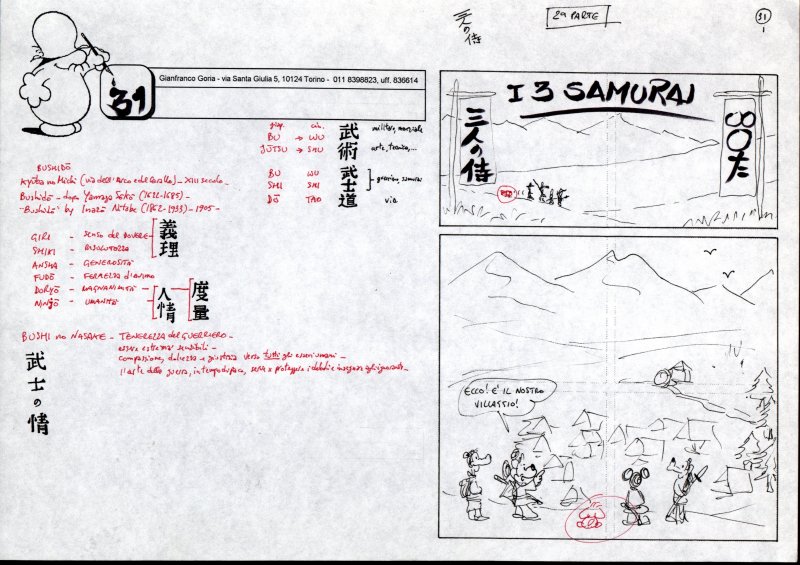 三人の侍
2ª PARTE
31
1
31
Gianfranco Goria - via Santa Giulia 5, 10124 Torino - 011 8398823, uff. 836614
giap. cin.
BU → WU 武 militare, marziale
JŪTSU → SHU 術 arte, tecnica,...
BU WU 武
SHI SHI 士 guerriero, samurai
DŌ TAO 道 via
BUSHIDŌ
Kyūba no Michi (via dell'Arco e del Cavallo) - XIII secolo -
Bushidō - dopo Yamaga Sokō (1622-1685) -
"Bushidō" by Inazō Nitobe (1862-1933) - 1905 -
GIRI - SENSO del DOVERE - 義理
SHIKI - RISOLUTEZZA
ANSHA - GENEROSITÀ
FUDŌ - FERMEZZA d'animo
DORYŌ - MAGNANIMITÀ - 度量
NINJŌ - UMANITÀ 人情
BUSHI no NASAKE - TENEREZZA del GUERRIERO -
essere estremam. sensibili -
compassione, dolcezza e giustizia verso tutti gli esseri umani -
l'arte della guerra, in tempo di pace, serve x proteggere i deboli e insegnare agli ignoranti -
武士の情
I 3 SAMURAI
三人の侍
ECCO! E' IL NOSTRO
VILLAGGIO!